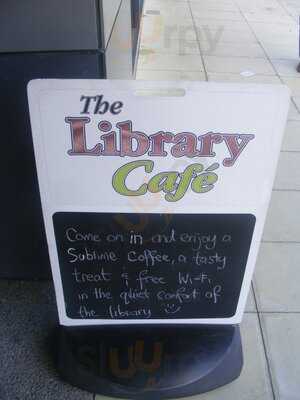 The
Library
Café
Come on in and enjoy a
Sublime Coffee, a tasty
treat & free Wi-Fi
in the quiet comfort of
the library